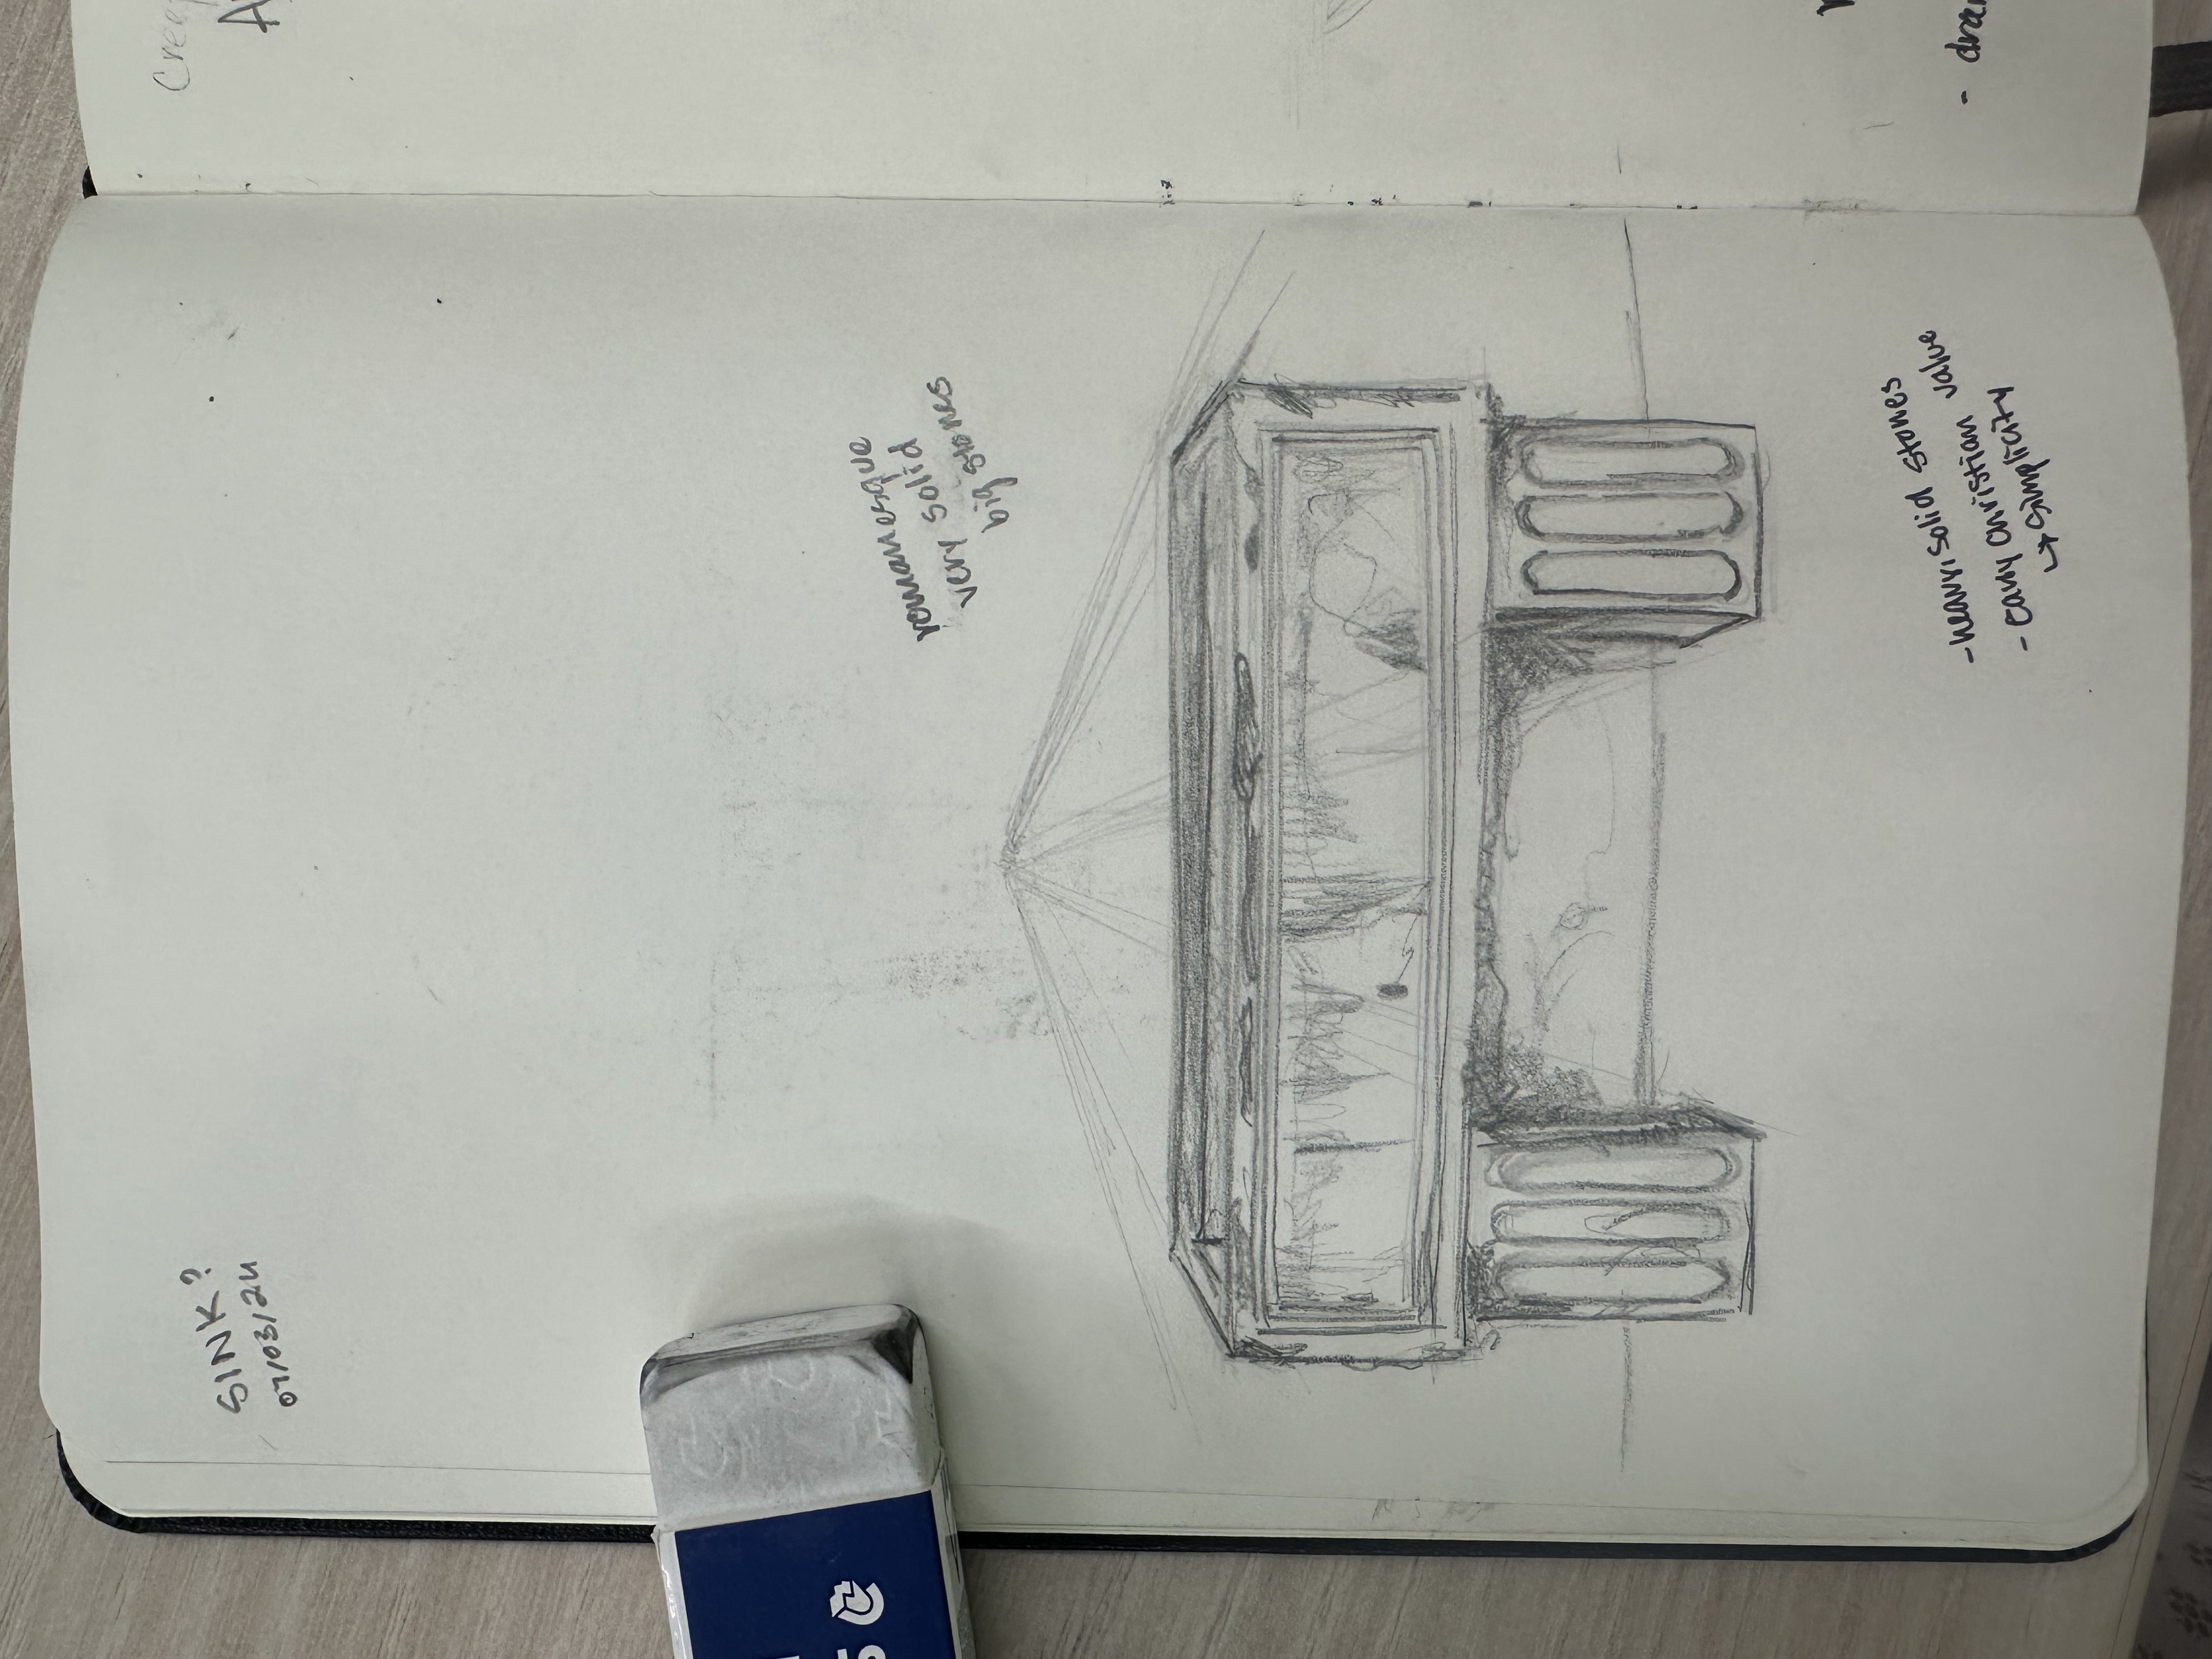 SINK?
07/03/24
romanesque
very solid
big stones
- heavy, solid stones
- early christian value
↳ simplicity
Cree
A
-